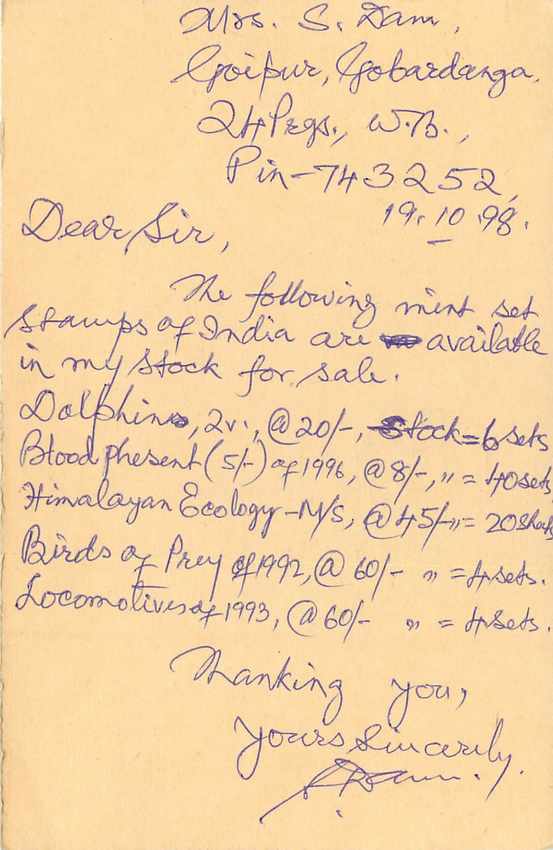 Mrs. S. Dam,
Goipur, Gobardanga.
24 Prgs., W.B.,
Pin-743252,
19.10.98.
Dear Sir,
The following mint set
stamps of India are available
in my stock for sale.
Dolphins, 2v., @20/-, Stock=6sets
Blood phesent (5/-) of 1996, @8/-, " = 40sets
Himalayan Ecology-M/S, @45/- " = 20
Birds of Prey of 1992, @ 60/- " = 4sets.
Locomotives of 1993, @60/- " = 4sets.
Thanking you,
Yours Sincerily.
SDam.